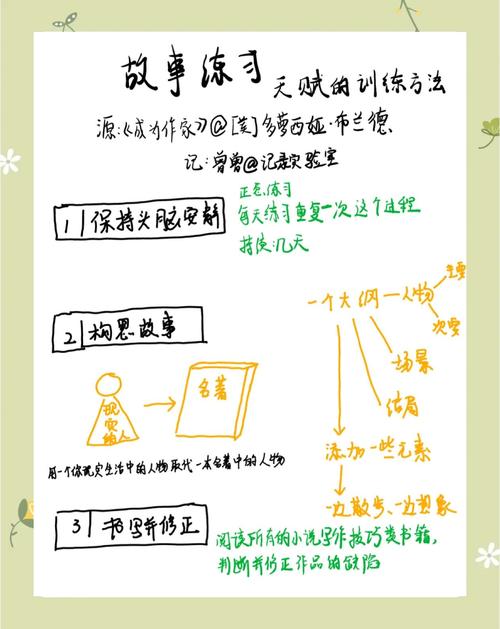 故事练习 天赋的训练方法
源:《成为作家》@[美]多萝西娅·布兰德
记:曾曾@记录实验室
1 保持头脑安静
正念练习
每天练习重复一次这个过程
持续:几天
2 构思故事
现实的人
名著
用一个你现实生活中的人物取代一本名著中的人物
一个大纲—人物
主要
次要
场景
结局
添加一些元素
一边散步、一边想象
3 书写并修正
阅读所有的小说写作技巧类书籍,
判断并修正作品的缺陷